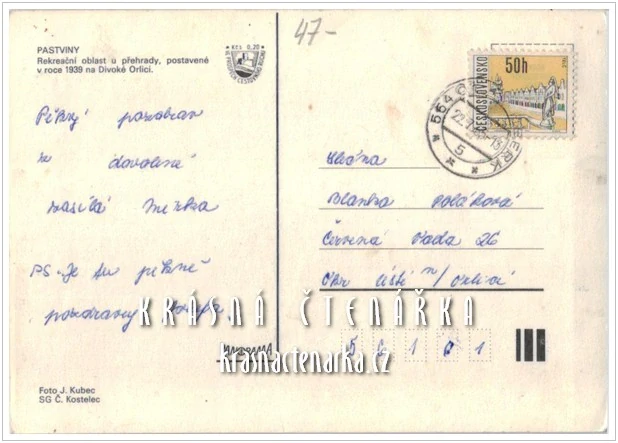 47-
PASTVINY
Rekreační oblast u přehrady, postavené
v roce 1939 na Divoké Orlici.
Kčs 0,20
50h
ČESKOSLOVENSKO
Pěkný pozdrav
z dovolené
zasílá Mirka
PS. Je tu pěkně
pozdravuj
Slečna
Blanka Poláková
Červená Voda 26
Okr Ústí n/Orlicí
56161
KRÁSNÁ ČTENÁŘKA
krasnactenarka.cz
Foto J. Kubec
SG Č. Kostelec